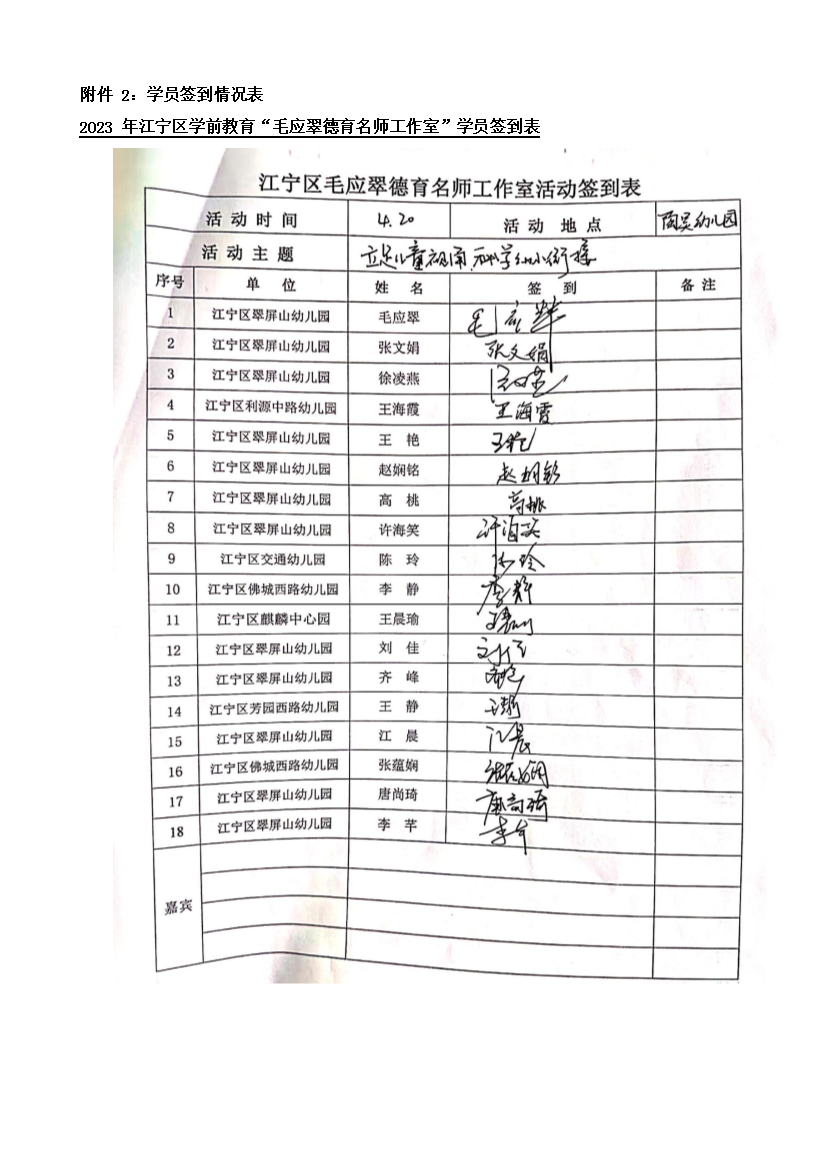 附件 2：学员签到情况表
2023 年江宁区学前教育“毛应翠德育名师工作室”学员签到表
江宁区毛应翠德育名师工作室活动签到表
活动时间 4.20 活动地点 幼儿园
活动主题 立足儿童视角,科学幼小衔接
序号 单位 姓名 签到 备注
1 江宁区翠屏山幼儿园 毛应翠 毛应翠
2 江宁区翠屏山幼儿园 张文娟 张文娟
3 江宁区翠屏山幼儿园 徐凌燕
4 江宁区利源中路幼儿园 王海霞 王海霞
5 江宁区翠屏山幼儿园 王艳 王艳
6 江宁区翠屏山幼儿园 赵娴铭 赵娴铭
7 江宁区翠屏山幼儿园 高桃 高桃
8 江宁区翠屏山幼儿园 许海笑 许海笑
9 江宁区交通幼儿园 陈玲 陈玲
10 江宁区佛城西路幼儿园 李静 李静
11 江宁区麒麟中心园 王晨瑜
12 江宁区翠屏山幼儿园 刘佳 刘佳
13 江宁区翠屏山幼儿园 齐峰
14 江宁区芳园西路幼儿园 王静 王静
15 江宁区翠屏山幼儿园 江晨 江晨
16 江宁区佛城西路幼儿园 张蕴娴 张蕴娴
17 江宁区翠屏山幼儿园 唐尚琦 唐尚琦
18 江宁区翠屏山幼儿园 李芊 李芊
嘉宾